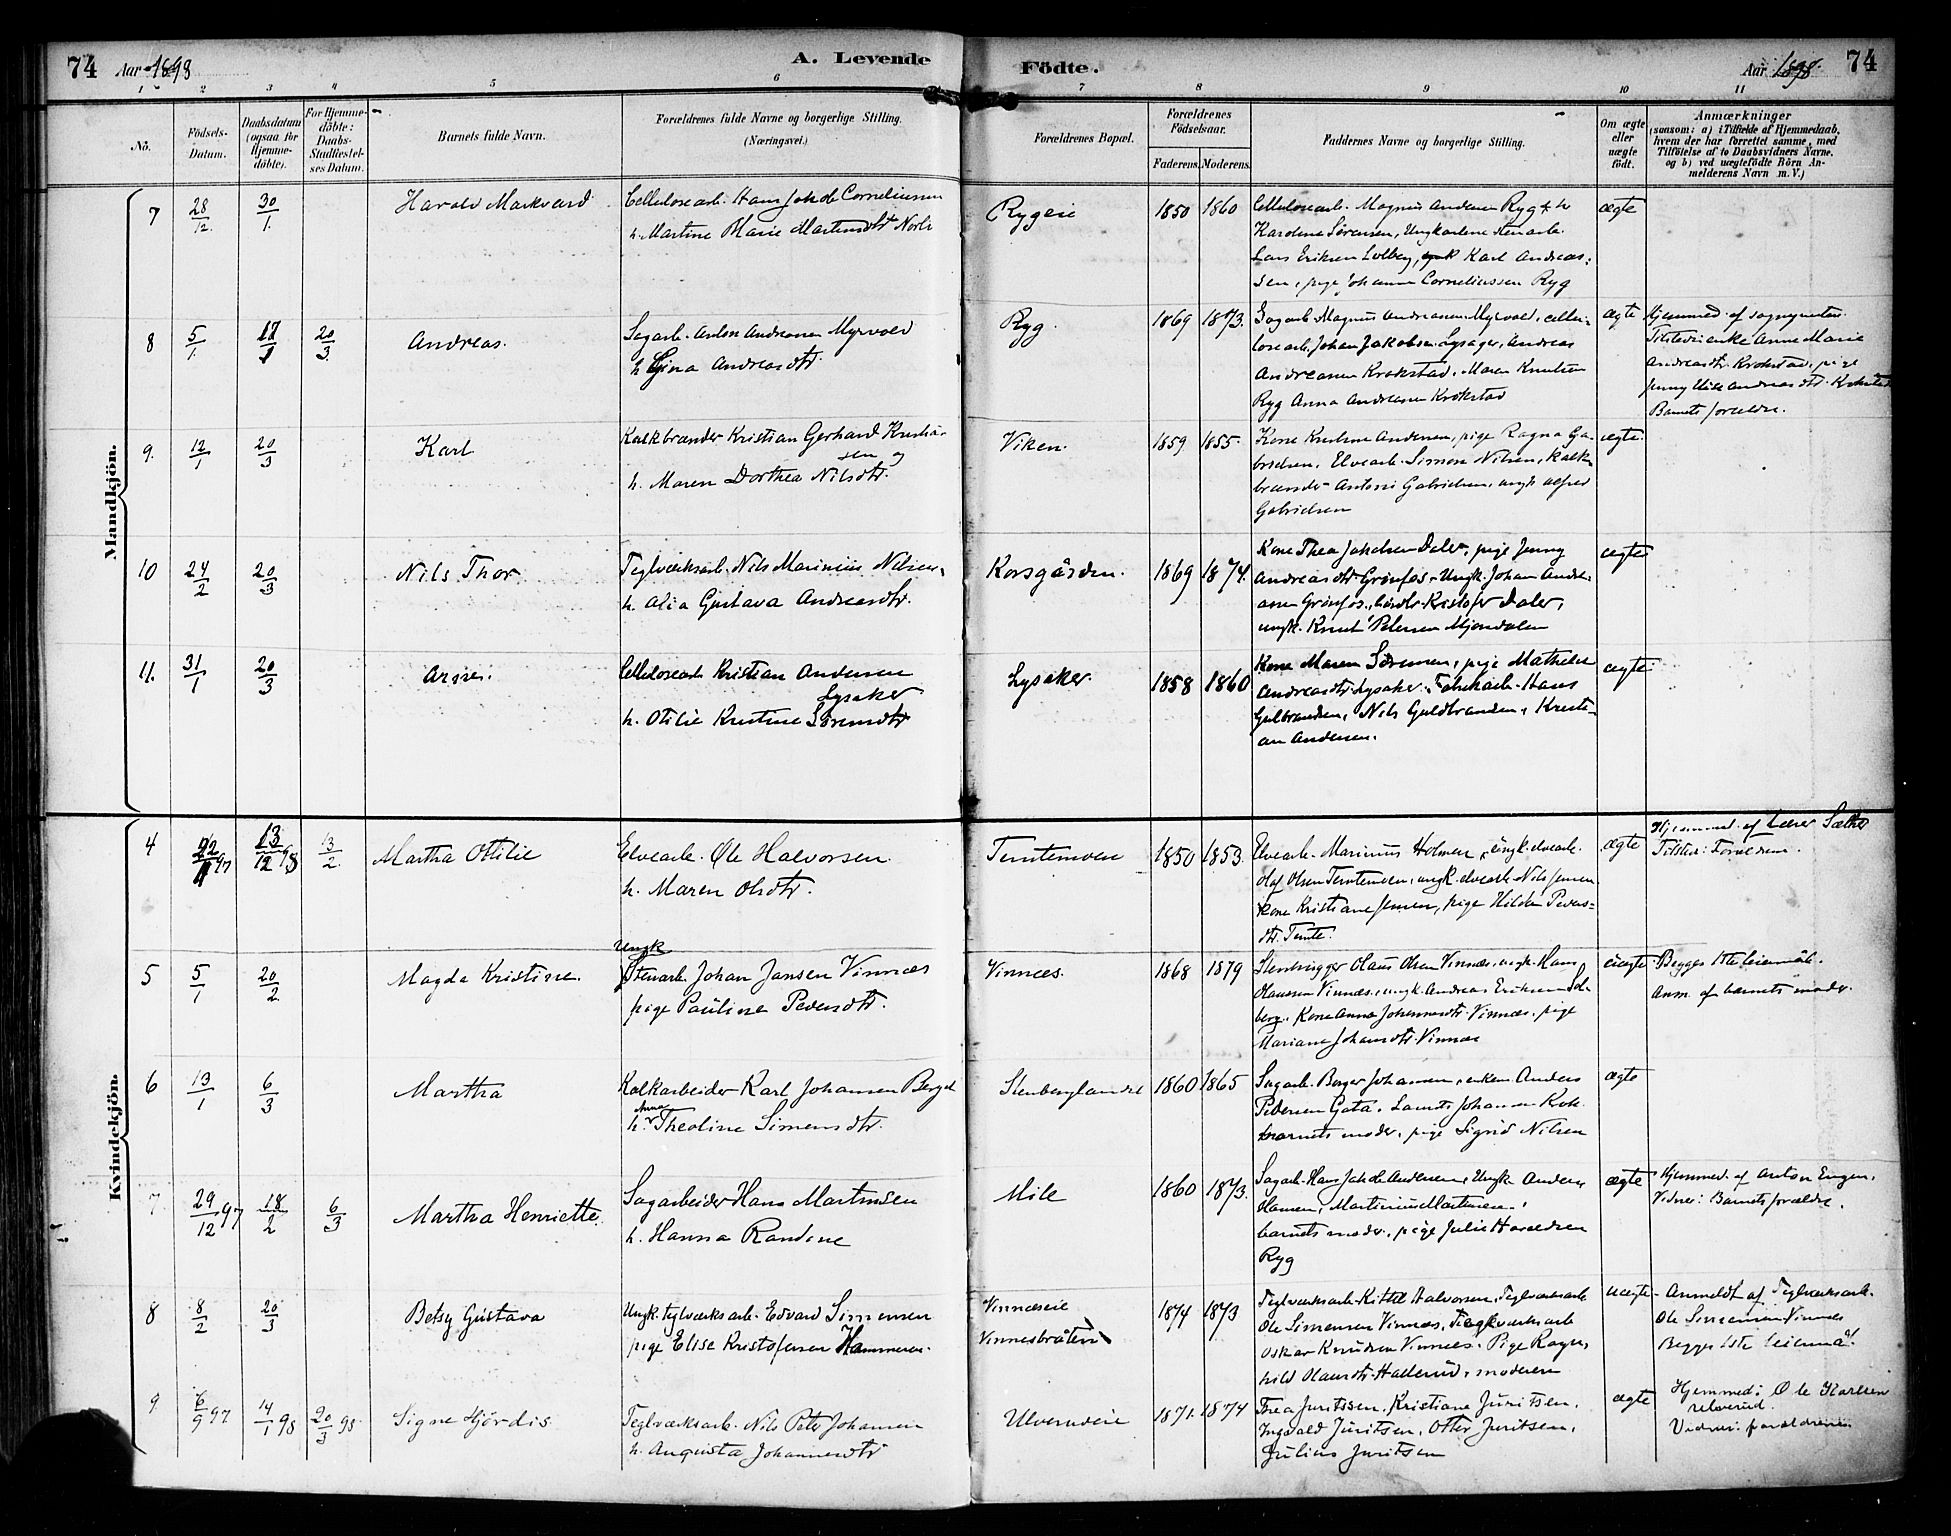 74 Aar 1898 A. Levende Födte. Aar 1898. 74
1 2 3 4 5 6 7 8 9 10 11
No. Födsels-Datum. Daabsdatum (ogsaa for Hjemmedöbte). For Hjemmedöbte: Daabs-Stadfæstelses Datum. Barnets fulde Navn. Forældrenes fulde Navne og borgerlige Stilling. (Næringsvei.) Forældrenes Bopæl. Forældrenes Födselsaar. Faderens. Moderens. Faddernes Navne og borgerlige Stilling. Om ægte eller uægte födt. Anmærkninger (saasom: a) i Tilfælde af Hjemmedaab, hvem der har forrettet samme, med Tilföielse af to Daabsvidners Navne, og b) ved uægtefödte Börn Anmelderens Navn m. V.)
Mandkjön.
7 28/12. 30/1. Harald Markvard Cellulosearb. Hans Jakob Corneliussen
h. Martine Marie Martinsdtr
Rygeie 1850 1860 Cellulosearb. Magnus Andersen Ryg + h
Karoline Sörensen, Ungkarlene stenarb.
Lars Eriksen Solberg, Karl Andreas-
sen, pige Johanne Corneliussen Ryg
ægte
8 5/1. 17/1 20/3. Andreas. Sagarb. Anton Andreasen Myrvold
h. Gina Andreasdtr.
Ryg. 1869 1873. Sagarb. Magnus Andreasen Myrvold, cellu-
losearb. Johan Jakobsen Lysager, Andreas
Andreasen Krokstad, Maren Knudsen
Ryg Anna Andreasen Krokstad
ægte Hjemmed. af
Tilsted: enke Anne Marie
Andreasdtr. Krokstad, pige
Jenny Andreasdtr. Krokstad
Barnets forældre.
9. 12/1 20/3 Karl Kalkbrænder Kristian Gerhard Kristian-
sen og
h. Maren Dorthea Nilsdtr.
Viken. 1859 1855. Kone Kristine Andersen, pige Ragna Ga-
brielsen, Elvearb. Simon Nilsen, Kalk-
brænder Antoni Gabrielsen, ungk Alfred
Gabrielsen
ægte.
10 24/2 20/3 Nils Thor Teglværksarb. Nils Marinius Nilsen,
h. Alia Gustava Andreasdtr.
Korsgården. 1869 1874. Kone Thea Jakobsen Daler, pige Jenny
Andreasdtr Grönfos, Ungk. Johan Andre-
asen Grönfos, Kristofer Daler,
ungk. Knut Petersen Mjöndalen
ægte
11. 31/1 20/3 Arne. Cellulosearb Kristian Andersen
Lysaker
h. Otilie Kristine Sörensdtr
Lysaker 1858 1860 Kone Maren Sörensen, pige Mathilde
Andreasdtr Lysaker, Fabrikarb. Hans
Gulbrandsen, Nils Guldbrandsen, Kristi-
an Andersen.
ægte
Kvindekjön.
4 97 13/12 98 13/2. Martha Ottilie Elvearb. Ole Halvorsen.
h. Maren Olsdtr.
Temtemoen 1850 1853. Elvearb. Marinius Holmen, ungk. elvearb.
Olaf Olsen Temtemoen, ungk. elvearb. Nils Jensen
Kone Kristiane Jensen, pige Hilda Peders-
dtr. Temte.
ægte Hjemmed. af Lærer Sæther
Tilsted: Forældrene.
5 5/1 20/2 Magda Kristine. Ungk
Stenarb. Johan Jansen Vinnæs
pige Pauline Pedersdtr.
Vinnæs. 1868 1879 Stenhugger Olaus Olsen Vinnæs, ungk. Hans
Olaussen Vinnæs, ungk. Andreas Eriksen Sol-
berg, Kone Anna Johannesdtr. Vinnæs, pige
Mariane Johansdtr. Vinnæs
uægte Begges 1ste leiermål.
Anm. af barnets moder.
6 13/1 6/3 Martha Kalkarbeider Karl Johansen Berget
Anna
h. Theoline Simensdtr.
Stenberglandet 1860 1865 Sagarb. Berger Johansen, enkem. Anders
Pedersen Gata, Laurits Johansen
barnets moder, pige Sigrid Nilsen
ægte
7 29/12 97 18/2 6/3 Martha Henriette. Sagarbeider Hans Martinsen
h. Hanna Randine
Mile 1860 1873. Sagarb. Hans Jakob Andersen, Ungk Anders
Hansen, Martinius Martinsen,
barnets moder, pige Julie Haraldsen
Ryg
ægte Hjemmed. af Anton Engen.
Vidner: Barnets forældre.
8 8/2 20/3 Betsy Gustava Ungk. teglværksarb. Edvard Simensen
pige Elise Kristofersen Hammeren.
Vinnæseie
Vinnesbråten
1874 1873 Teglværksarb. Kittil Halvorsen, Teglværksarb
Ole Simensen Vinnæs, Teglværksarb
Oskar Knudsen Vinnæs. Pige Ragn-
hild Olausdtr. Hallerud, moderen
uægte Anmeldt af Teglværksarb.
Ole Simensen Vinnæs
Begges 1ste leiermål.
9 6/9 97 14/1 98 20/3 98. Signe Hjördis Teglværksarb. Nils Peter Johansen
h. Augusta Johannesdtr
Ulverudeie 1871. 1874 Thea Juritssen, Kristiane Juritsen,
Ingvald Juritsen, Otter Juritsen,
Julius Juritsen
ægte Hjemmed: Ole Karlsen
Ulverud.
Vidner: forældrene